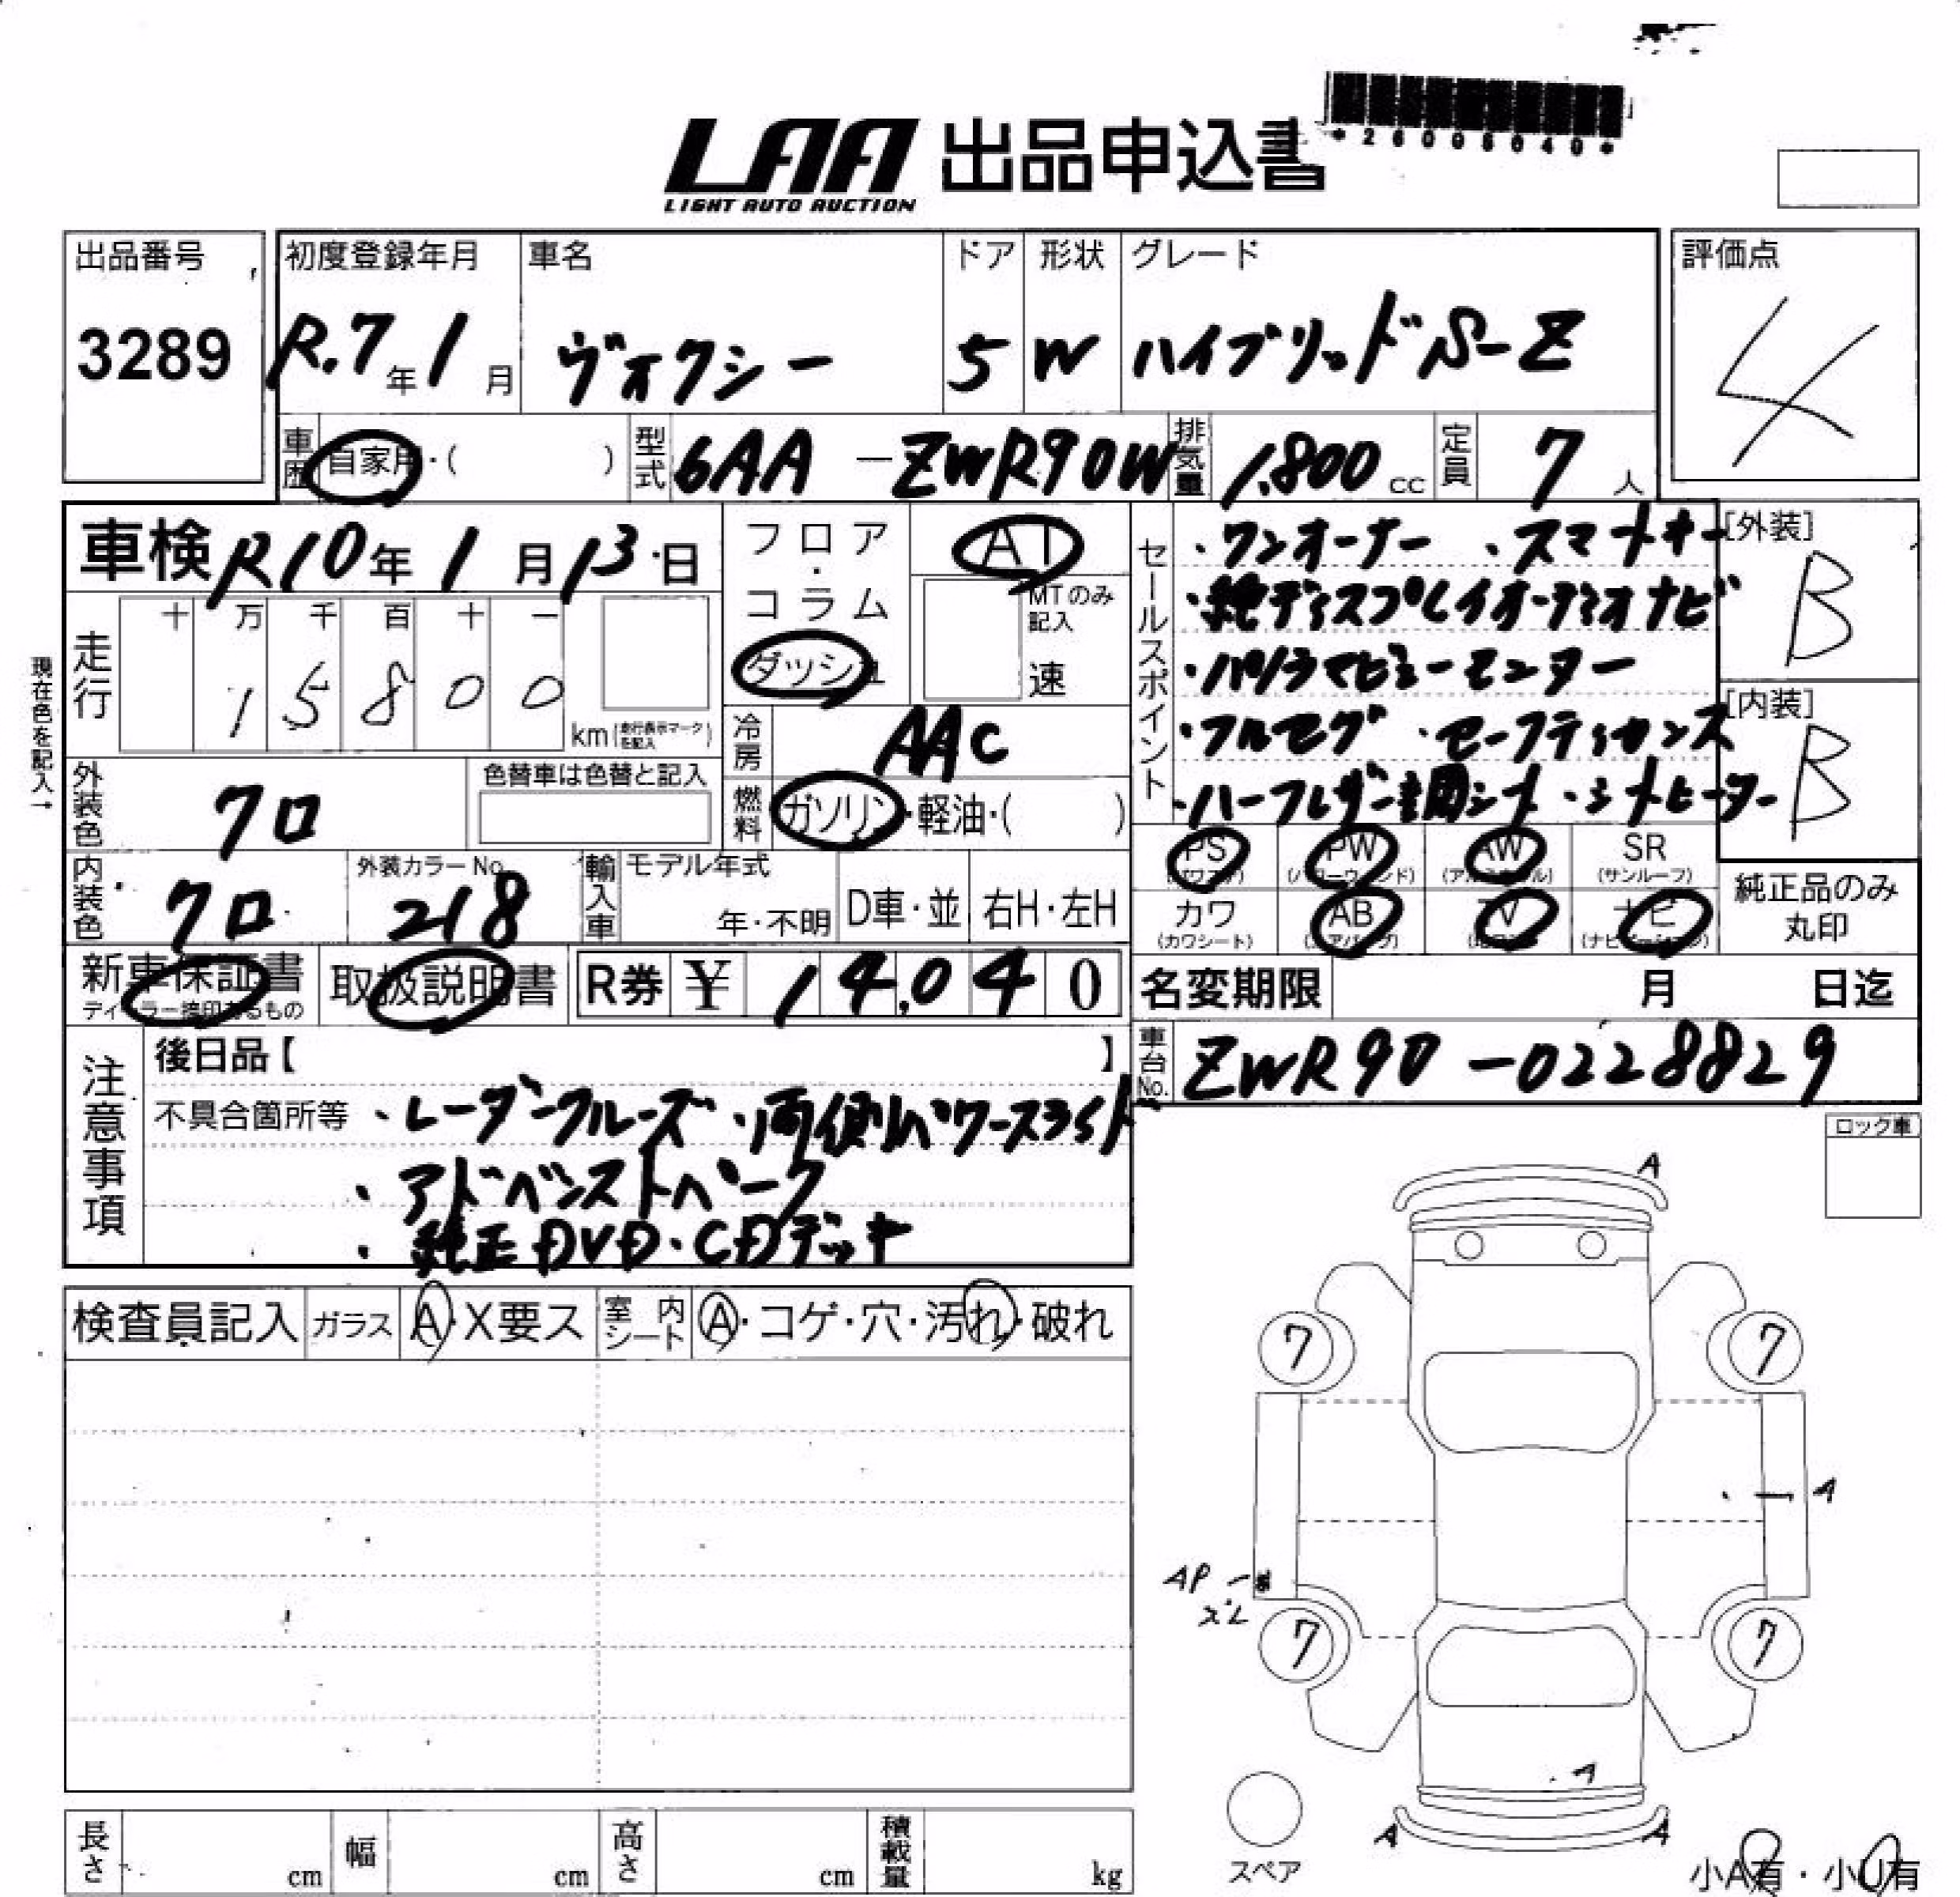 *26005040*
LAA 出品申込書
LIGHT AUTO AUCTION
出品番号 初度登録年月 車名 ドア 形状 グレード 評価点
3289 R.7年1月 ヴォクシー 5 W ハイブリッドS-Z 4
車歴 自家用・( ) 型式 6AA-ZWR90W 排気量 1,800cc 定員 7人
車検 R10年1月13日 フロア・コラム ダッシュ AT MTのみ記入 速
セールスポイント ・ワンオーナー ・スマートキー
・純ディスプレイオーディオナビ
・パノラマビューモンター
・フルセグ ・セーフティセンス
・ハーフレザー調シート ・シートヒーター
[外装] B
[内装] B
現在色を記入→
走行 十 万 千 百 十 一
1 5 8 0 0 km(走行表示マークを記入)
冷房 AAC
外装色 クロ 色替車は色替と記入 燃料 ガソリン・軽油・( )
PS (パワステ) PW (パワーウィンド) AW (アルミホイール) SR (サンルーフ)
カワ (カワシート) AB (エアバッグ) TV ナビ (ナビゲーション) 純正品のみ丸印
内装色 クロ 外装カラーNo. 218 輸入車 モデル年式 年・不明 D車・並 右H・左H
新車保証書 ディーラー捺印あるもの 取扱説明書 R券 ¥ 14,040 名変期限 月 日迄
車台No. ZWR90-0228829
注意事項 後日品【 】
不具合箇所等 ・レーダークルーズ ・両側パワースライド
・アドバンストパーク
・純正DVD・CDデッキ
ロック車
検査員記入 ガラス A・X要ス 室内シート A・コゲ・穴・汚れ・破れ
A
7 7
A
AP
ズレ
7 7
A
A A
スペア
小A有・小U有
長さ cm 幅 cm 高さ cm 積載量 kg